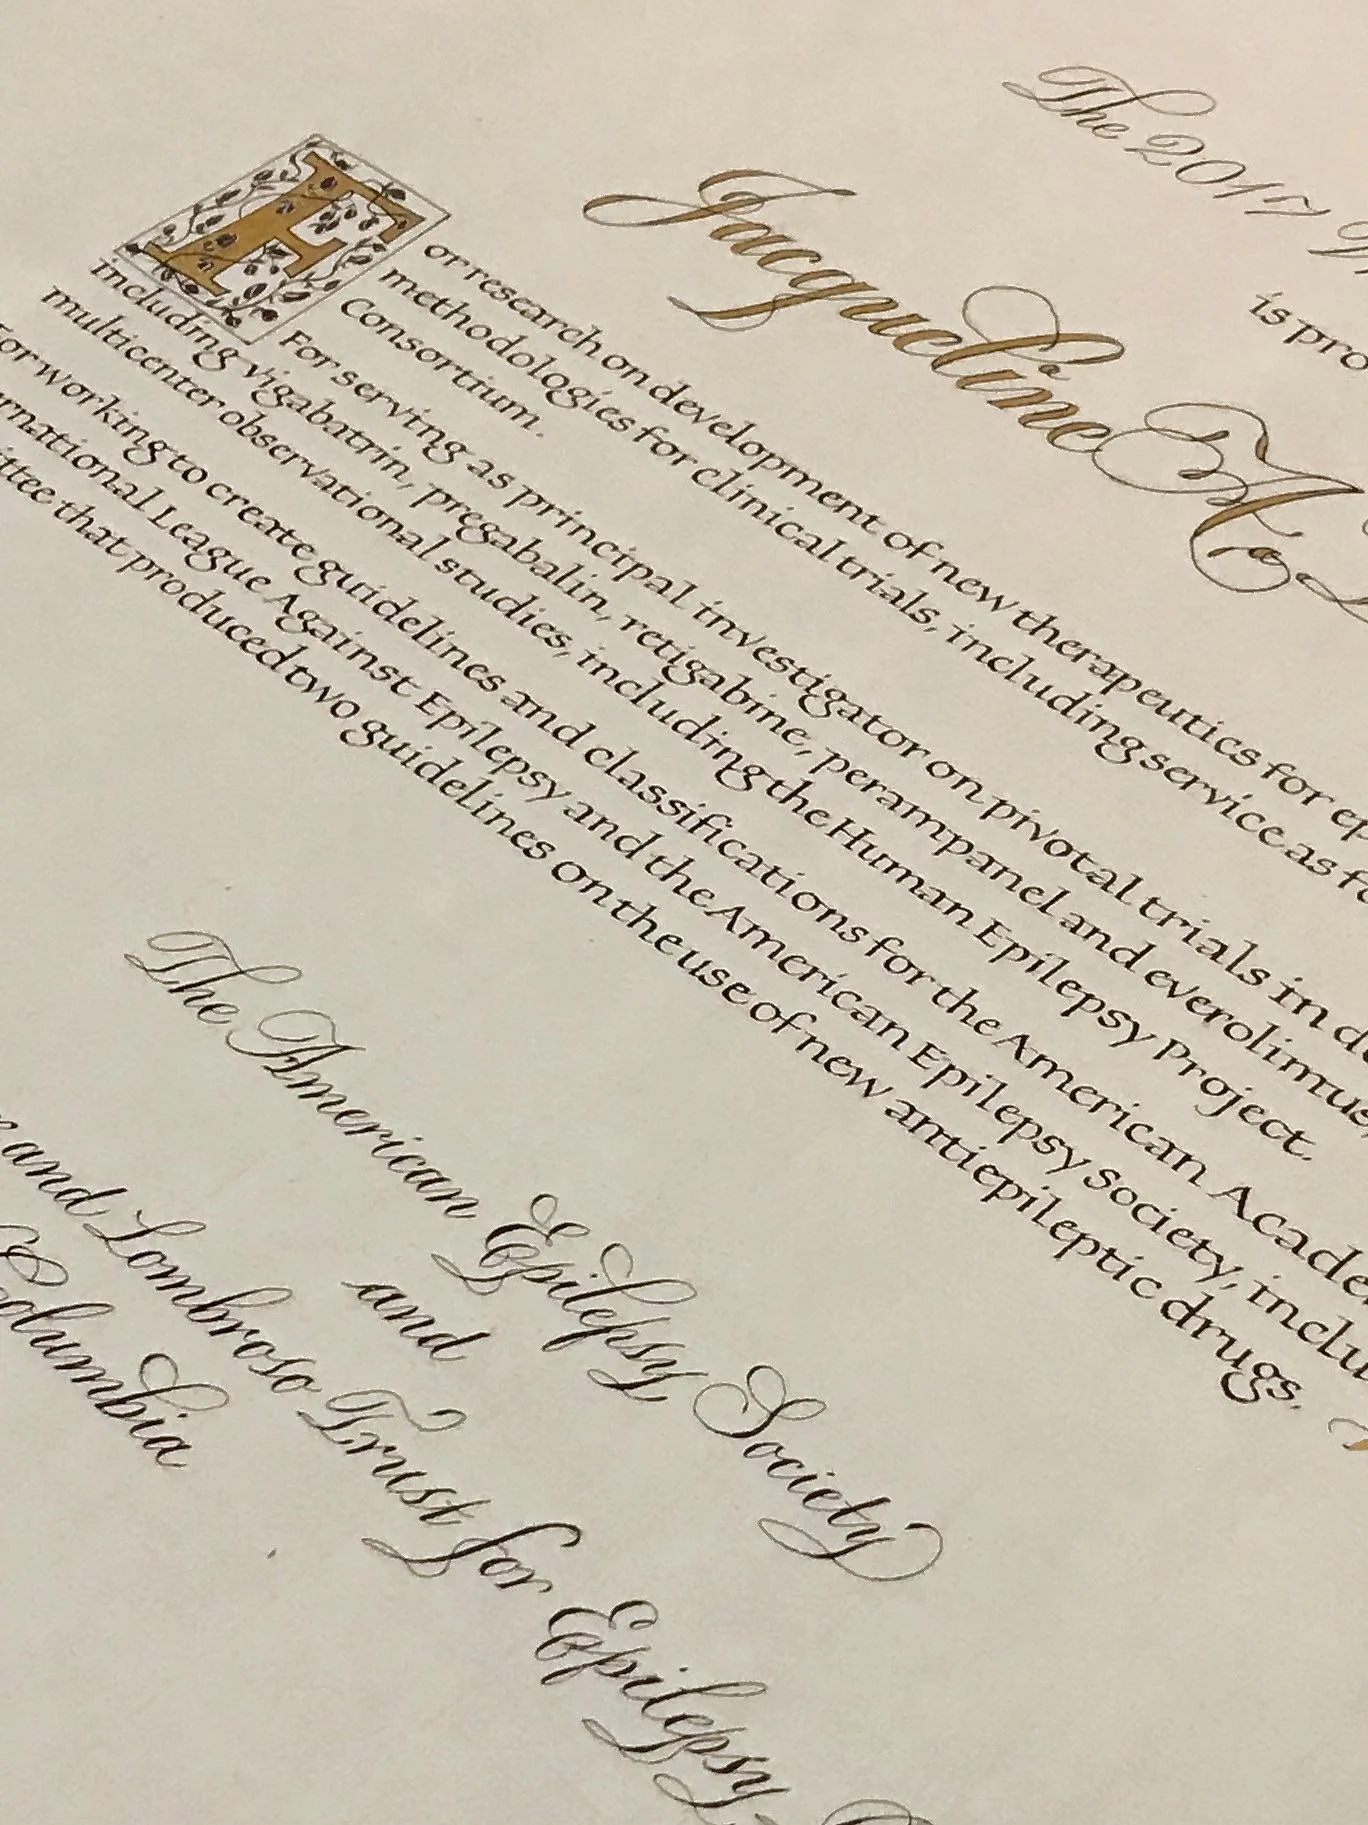 The 2017
is pro
Jacqueline A.
For research on development of new therapeutics for ep
methodologies for clinical trials, including service as f
Consortium.
For serving as principal investigator on pivotal trials in d
including vigabatrin, pregabalin, retigabine, perampanel and everolimus,
multicenter observational studies, including the Human Epilepsy Project.
For working to create guidelines and classifications for the American Acade
rnational League Against Epilepsy and the American Epilepsy Society, inclu
ittee that produced two guidelines on the use of new antiepileptic drugs.
The American Epilepsy Society
and
and Lombroso Trust for Epilepsy
Columbia